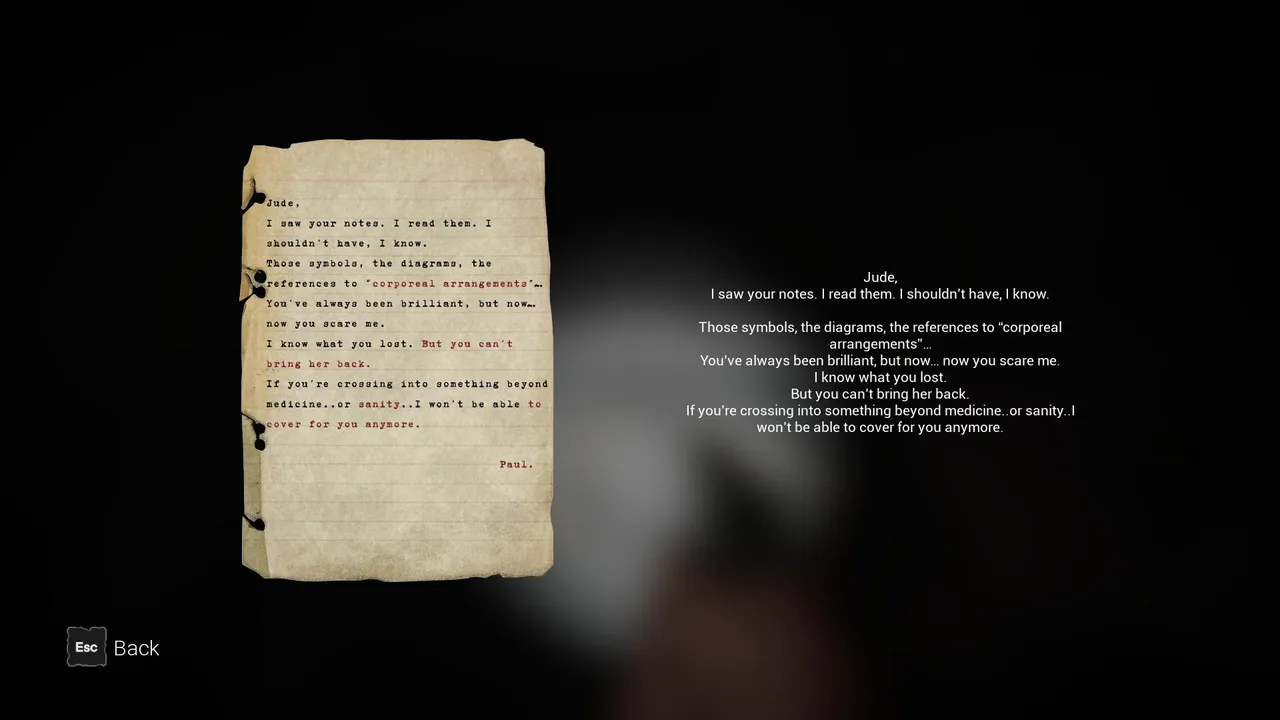 Jude,
I saw your notes. I read them. I
shouldn't have, I know.
Those symbols, the diagrams, the
references to "corporeal arrangements"…
You've always been brilliant, but now…
now you scare me.
I know what you lost. But you can't
bring her back.
If you're crossing into something beyond
medicine..or sanity..I won't be able to
cover for you anymore.
Paul.
Jude,
I saw your notes. I read them. I shouldn't have, I know.
Those symbols, the diagrams, the references to “corporeal
arrangements”…
You've always been brilliant, but now… now you scare me.
I know what you lost.
But you can't bring her back.
If you're crossing into something beyond medicine..or sanity..I
won't be able to cover for you anymore.
Esc Back